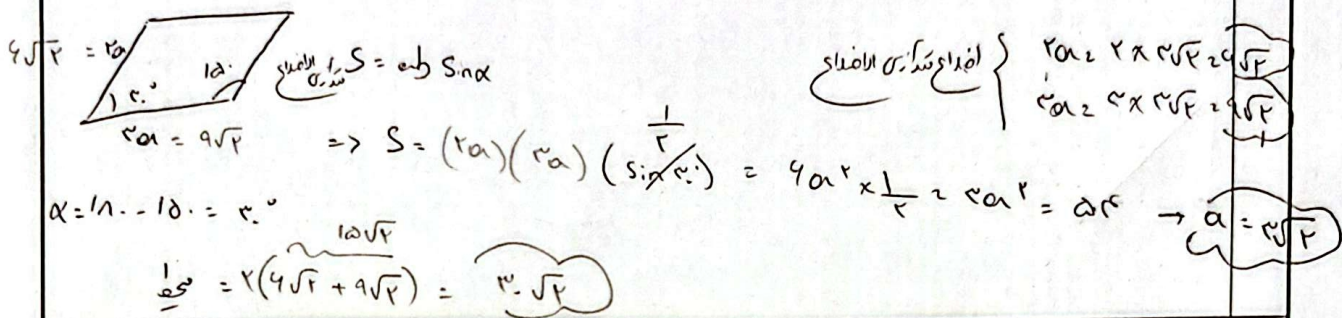 ۶√۲ = ۲a
۱۵۰
۳۰°
۳a = ۹√۲
متوازی الاضلاع S = ab sinα
اضلاع متوازی الاضلاع { ۲a = ۲ × ۳√۲ = ۶√۲
۳a = ۳ × ۳√۲ = ۹√۲
=> S = (۲a)(۳a)(sin ۳۰°) = ۶a^۲ × ۱/۲ = ۳a^۲ = ۵۴ → a = ۳√۲
۱/۲
α = ۱۸۰ - ۱۵۰ = ۳۰°
۱۵√۲
محیط = ۲(۶√۲ + ۹√۲) = ۳۰√۲